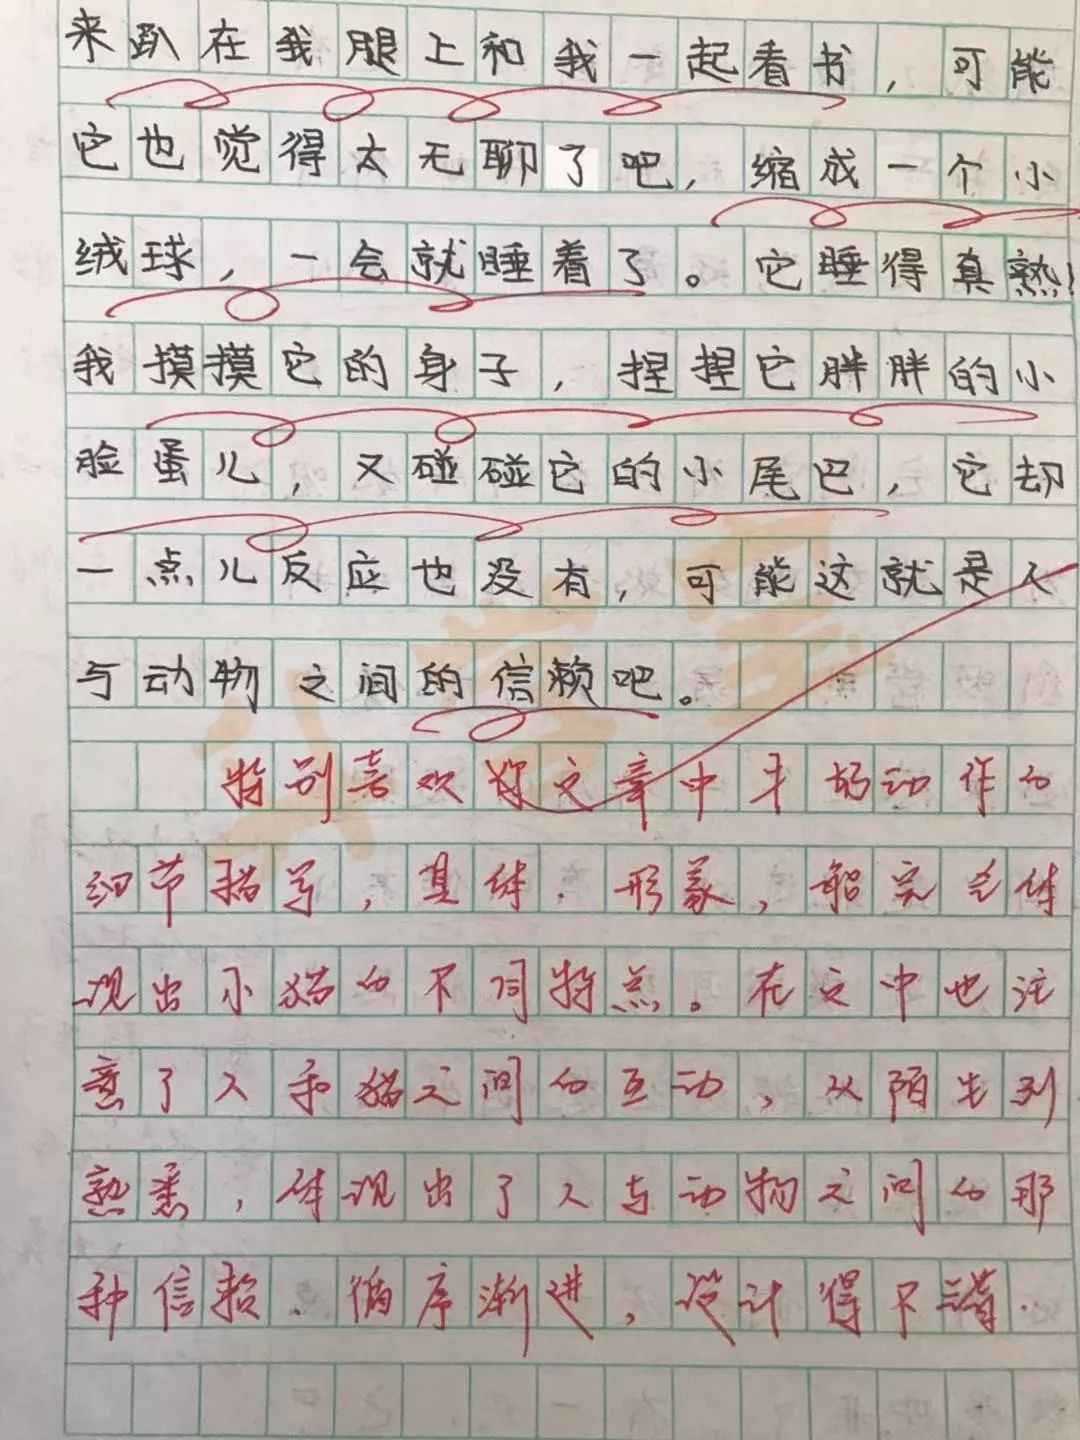 来趴在我腿上和我一起看书，可能
它也觉得太无聊了吧，缩成一个小
绒球，一会就睡着了。它睡得真熟！
我摸摸它的身子，捏捏它胖胖的小
脸蛋儿，又碰碰它的小尾巴，它却
一点儿反应也没有，可能这就是人
与动物之间的信赖吧。
特别喜欢你文章中才的动作的
细节描写，具体.形象，能完全体
现出小猫的不同特点。在文中也注
意了人和猫之间的互动，从陌生到
熟悉，体现出了人与动物之间的那
种信赖.循序渐进，设计得不错.